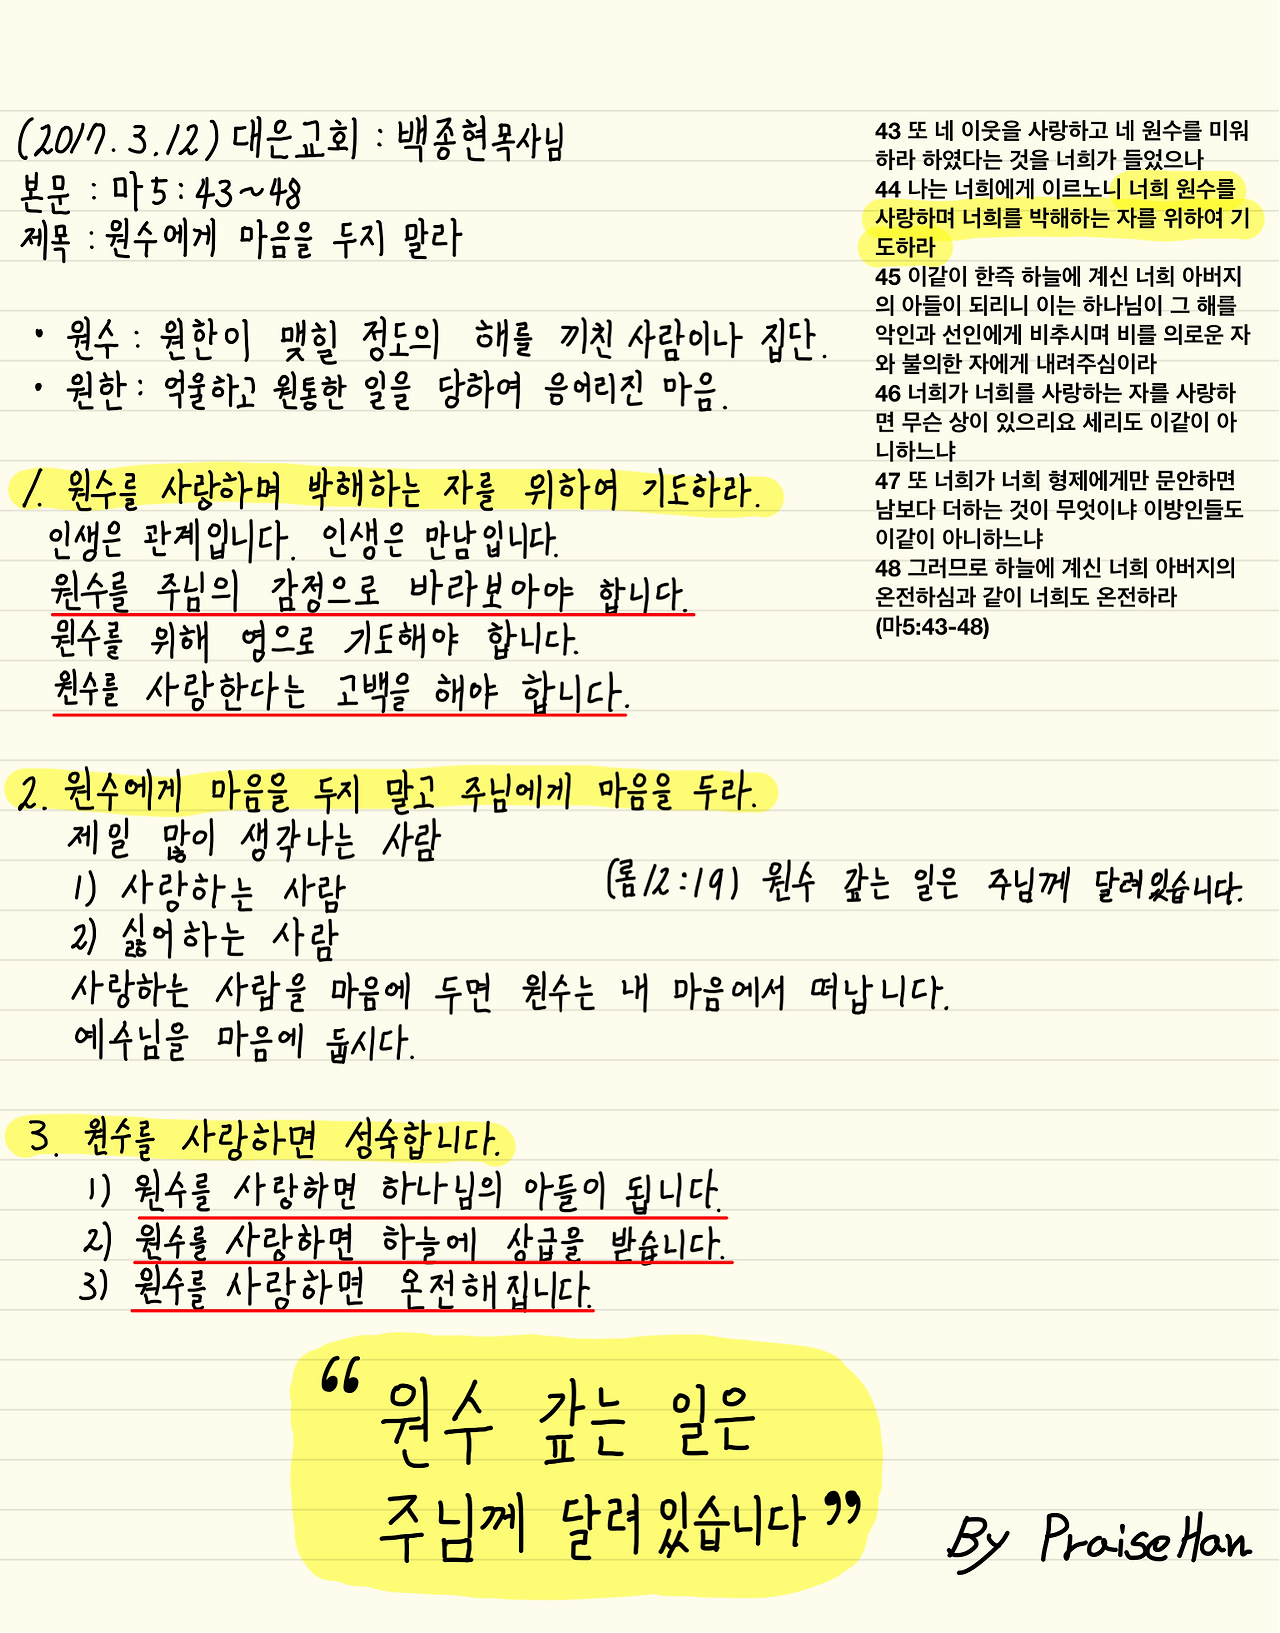 (2017. 3. 12) 대은교회 : 백종현목사님
본문 : 마 5 : 43 ~ 48
제목 : 원수에게 마음을 두지 말라
• 원수 : 원한이 맺힐 정도의 해를 끼친 사람이나 집단.
• 원한 : 억울하고 원통한 일을 당하여 응어리진 마음.
1. 원수를 사랑하며 박해하는 자를 위하여 기도하라.
인생은 관계입니다. 인생은 만남입니다.
원수를 주님의 감정으로 바라보아야 합니다.
원수를 위해 영으로 기도해야 합니다.
원수를 사랑한다는 고백을 해야 합니다.
2. 원수에게 마음을 두지 말고 주님에게 마음을 두라.
제일 많이 생각나는 사람
1) 사랑하는 사람
(롬 12 : 19) 원수 갚는 일은 주님께 달려있습니다.
2) 싫어하는 사람
사랑하는 사람을 마음에 두면 원수는 내 마음에서 떠납니다.
예수님을 마음에 둡시다.
3. 원수를 사랑하면 성숙합니다.
1) 원수를 사랑하면 하나님의 아들이 됩니다.
2) 원수를 사랑하면 하늘에 상급을 받습니다.
3) 원수를 사랑하면 온전해집니다.
“ 원수 갚는 일은
주님께 달려있습니다 ”
By PraiseHan
43 또 네 이웃을 사랑하고 네 원수를 미워
하라 하였다는 것을 너희가 들었으나
44 나는 너희에게 이르노니 너희 원수를
사랑하며 너희를 박해하는 자를 위하여 기
도하라
45 이같이 한즉 하늘에 계신 너희 아버지
의 아들이 되리니 이는 하나님이 그 해를
악인과 선인에게 비추시며 비를 의로운 자
와 불의한 자에게 내려주심이라
46 너희가 너희를 사랑하는 자를 사랑하
면 무슨 상이 있으리요 세리도 이같이 아
니하느냐
47 또 너희가 너희 형제에게만 문안하면
남보다 더하는 것이 무엇이냐 이방인들도
이같이 아니하느냐
48 그러므로 하늘에 계신 너희 아버지의
온전하심과 같이 너희도 온전하라
(마5:43-48)